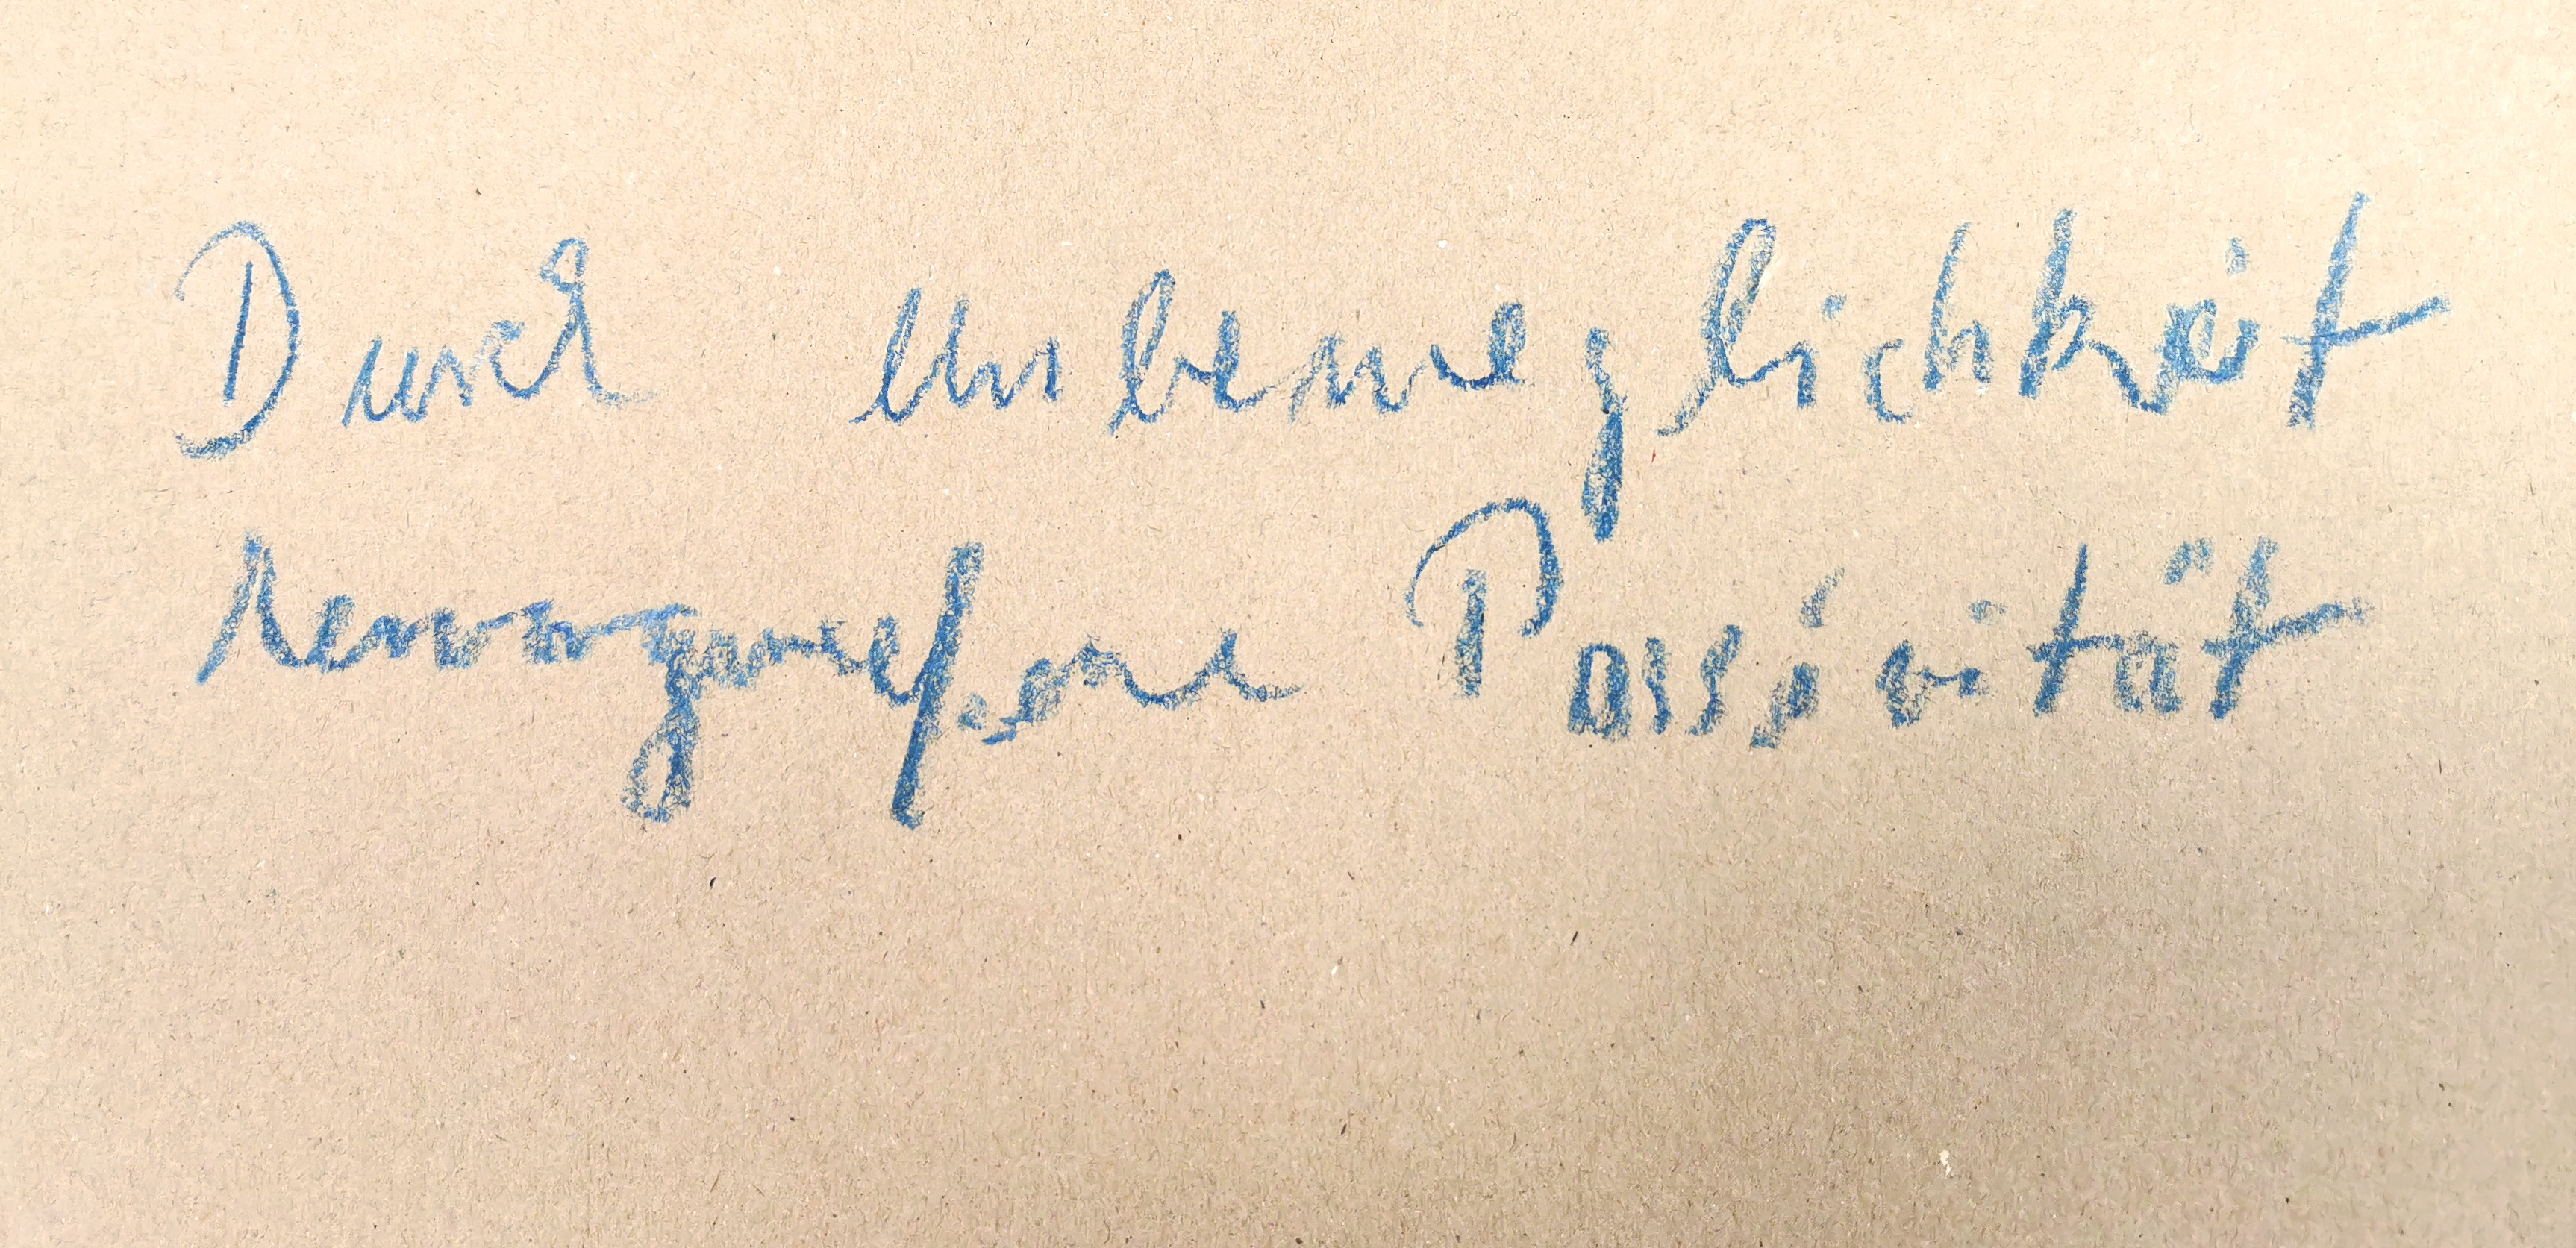 Durch Unbeweglichkeit
hervorgerufene Passivität